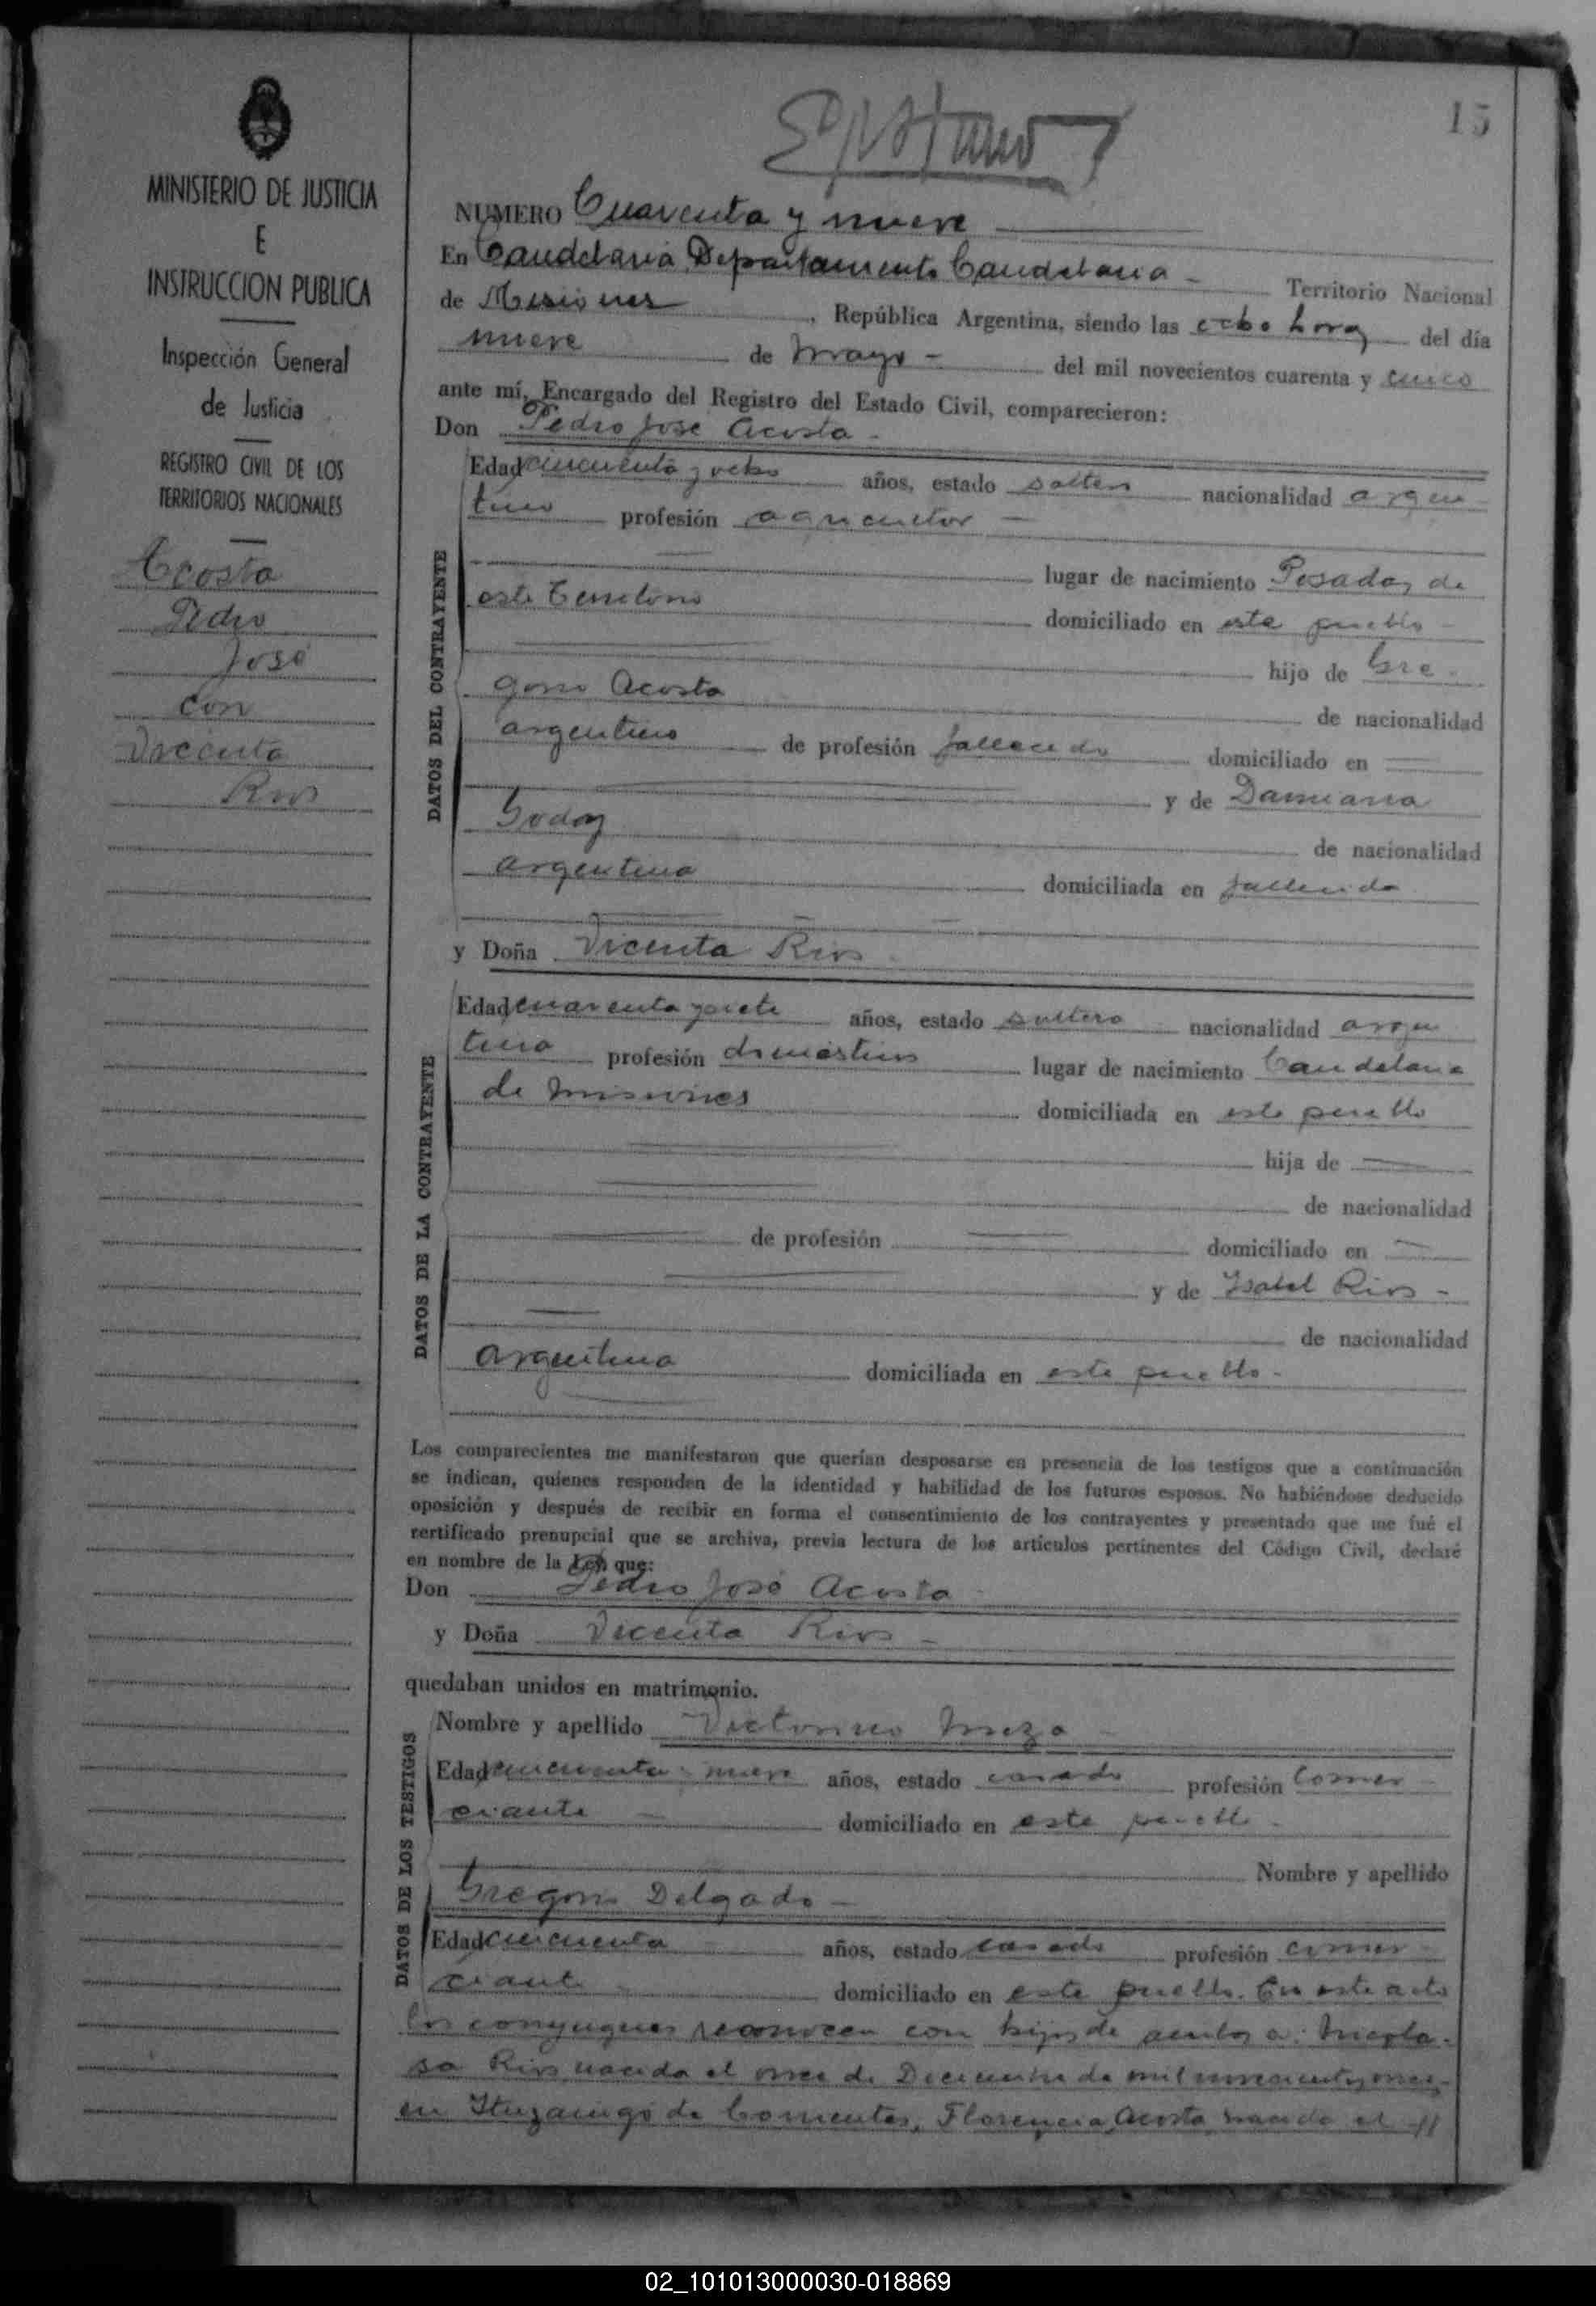 15
MINISTERIO DE JUSTICIA
E
INSTRUCCION PUBLICA
Inspección General
de Justicia
REGISTRO CIVIL DE LOS
TERRITORIOS NACIONALES
Acosta
Pedro
José
con
Vicenta
Rios
NUMERO Cuarenta y nueve
En Candelaria Departamento Candelaria - Territorio Nacional
de Misiones, República Argentina, siendo las ocho horas del día
nueve de mayo - del mil novecientos cuarenta y cinco
ante mí, Encargado del Registro del Estado Civil, comparecieron:
Don Pedro José Acosta -
DATOS DEL CONTRAYENTE
Edad cincuenta y ocho años, estado soltero nacionalidad argen
tino profesión agricultor -
lugar de nacimiento Posadas de
este Territorio domiciliado en este pueblo -
hijo de Gre
gorio Acosta de nacionalidad
argentino de profesión fallecido domiciliado en
y de Damiana
Godoy de nacionalidad
argentina domiciliada en fallecida
y Doña Vicenta Rios -
DATOS DE LA CONTRAYENTE
Edad cuarenta y siete años, estado soltera nacionalidad argen
tina profesión domésticos lugar de nacimiento Candelaria
de Misiones domiciliada en este pueblo
hija de
de nacionalidad
de profesión domiciliado en
y de Isabel Rios -
de nacionalidad
argentina domiciliada en este pueblo -
Los comparecientes me manifestaron que querían desposarse en presencia de los testigos que a continuación
se indican, quienes responden de la identidad y habilidad de los futuros esposos. No habiéndose deducido
oposición y después de recibir en forma el consentimiento de los contrayentes y presentado que me fué el
certificado prenupcial que se archiva, previa lectura de los artículos pertinentes del Código Civil, declaré
en nombre de la Ley que:
Don Pedro José Acosta -
y Doña Vicenta Rios -
quedaban unidos en matrimonio.
DATOS DE LOS TESTIGOS
Nombre y apellido Victorino Meza -
Edad cincuenta nueve años, estado casado profesión comer
ciante - domiciliado en este pueblo -
Nombre y apellido
Gregorio Delgado -
Edad cincuenta años, estado casado profesión comer
ciante domiciliado en este pueblo. En este acto
los conyugues reconocen con hijos de ambos a: Nicola
sa Rios nacida el once de Diciembre de mil novecientos once,
en Ituzaingó de Corrientes, Florencia Acosta nacida el 11
02_101013000030-018869